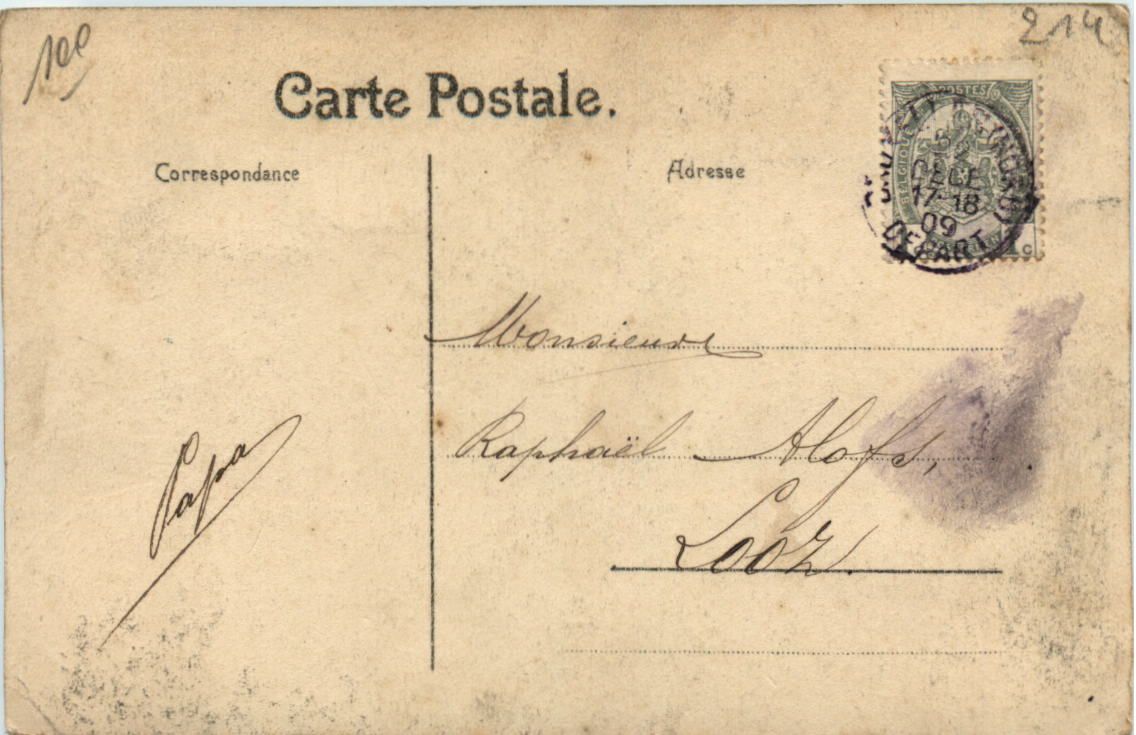 100
214
Carte Postale.
Correspondance
Adresse
POSTES
BELGIQUE
DECE
17-18
09
DEPART
1c
Monsieur
Raphaël Alofs,
Looz.
Papa